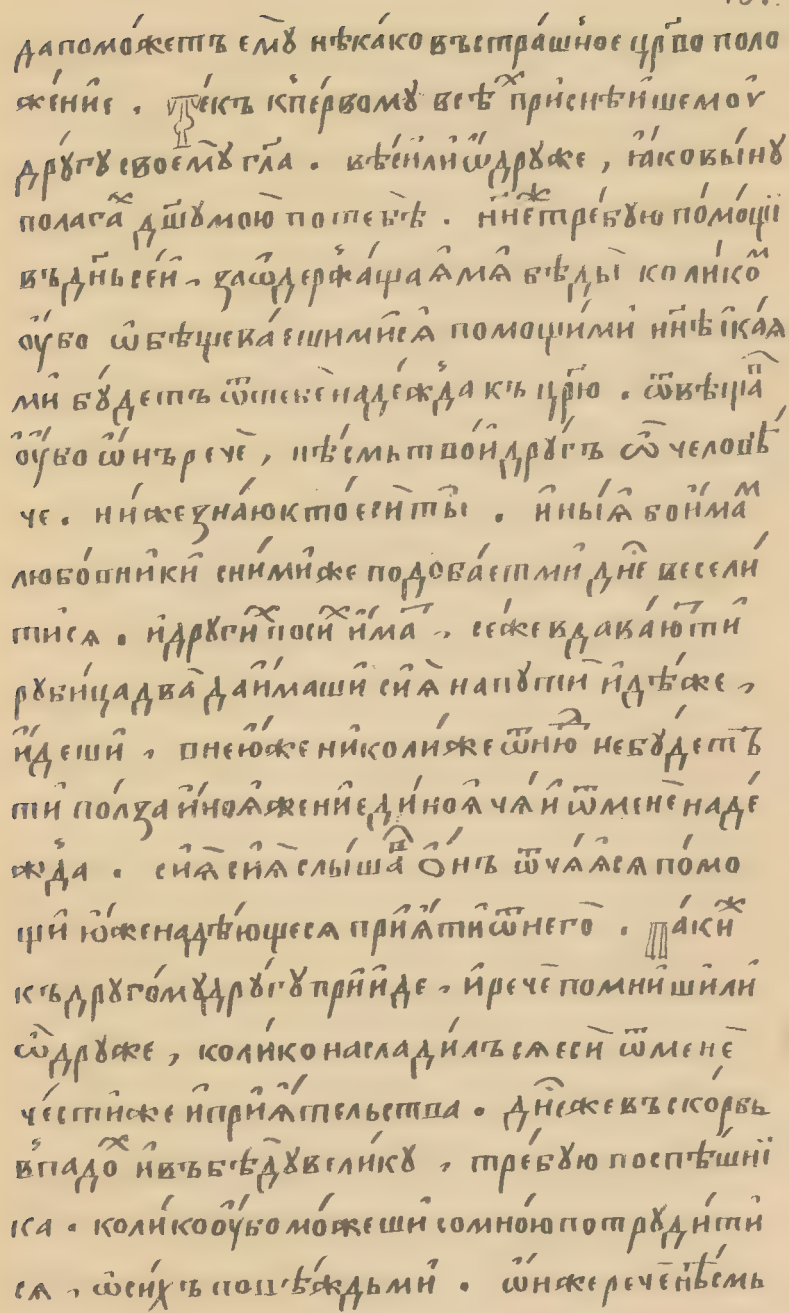 да помо́жетъ емꙋ̀ нѣка́ко въ стра́шное цр҇тво поло
же́нїе . Те́къ к пе́рвомꙋ всѣⷯ при́снѣишемоу
дрꙋ́гꙋ своемꙋ̀ гл҃а . вѣ́си ли ѿ дрꙋ́же , ꙗ́ко вы́нꙋ
полагаⷯ дш҃ꙋ мою̀ по тебѣ̀ . нн҃ѣⷤ тре́бꙋю по́мощи
въ дн҃ь се́й , за ѡдержа́щаѧ мѧ̀ бѣды̀ коли́коⷨ
оу҆́бо ѡбѣщева́еши ми сѧ помощи́ ми нн҃ѣ и ка́ѧ
ми бꙋ́детъ ѿ тебѐ наде́жда къ цр҃ю̀ . ѿвѣща́ⷡ
оу҆́бо ѡ́нъ речѐ , нѣ́смь тво́й дрꙋ́гъ ѽ человѣ́
че . ни́же зна́ю кто̀ есѝ ты̀ . ины́ѧ бо и́маⷨ
любо́вники с ни́миже подоба́етъ ми дне́ весели́
тисѧ . и дрꙋги́ⷯ по си́ⷯ и́маⷨ , се́ же вдава́ю ти
рꙋби́ща два̀ да и́маши сиѧ̀ на пꙋтѝ идѣ́же ,
и́деши , в нею́же николи́же ѿню́ⷣ не бꙋ́детъ
ти по́лза и́ноѧ же ниеди́ноѧ ча́й ѿ менѐ наде́
жда . сиѧ̀ сиѧ̀ слы́шаⷡ о́нъ ѿча́ѧсѧ по́мо
щи ю́же надѣ́ющесѧ приѧ́ти ѿ него̀ . Па́киⷤ
къ дрꙋго́мꙋ дрꙋ́гꙋ прїи́де , и речѐ по́мниши ли
ѽ дрꙋ́же , коли́ко наслади́лъ сѧ есѝ ѿ менѐ
че́сти же и приѧ́тельства . дне́ же въ ско́рбь
впадо́ⷯ и въ бѣдꙋ̀ вели́кꙋ , тре́бꙋю поспѣ́шни
ка . коли́ко оу҆́бо мо́жеши со мно́ю потрꙋди́ти
сѧ , ѡ си́хъ повѣ́ждь ми . ѡ́н же речѐ нѣ́смь